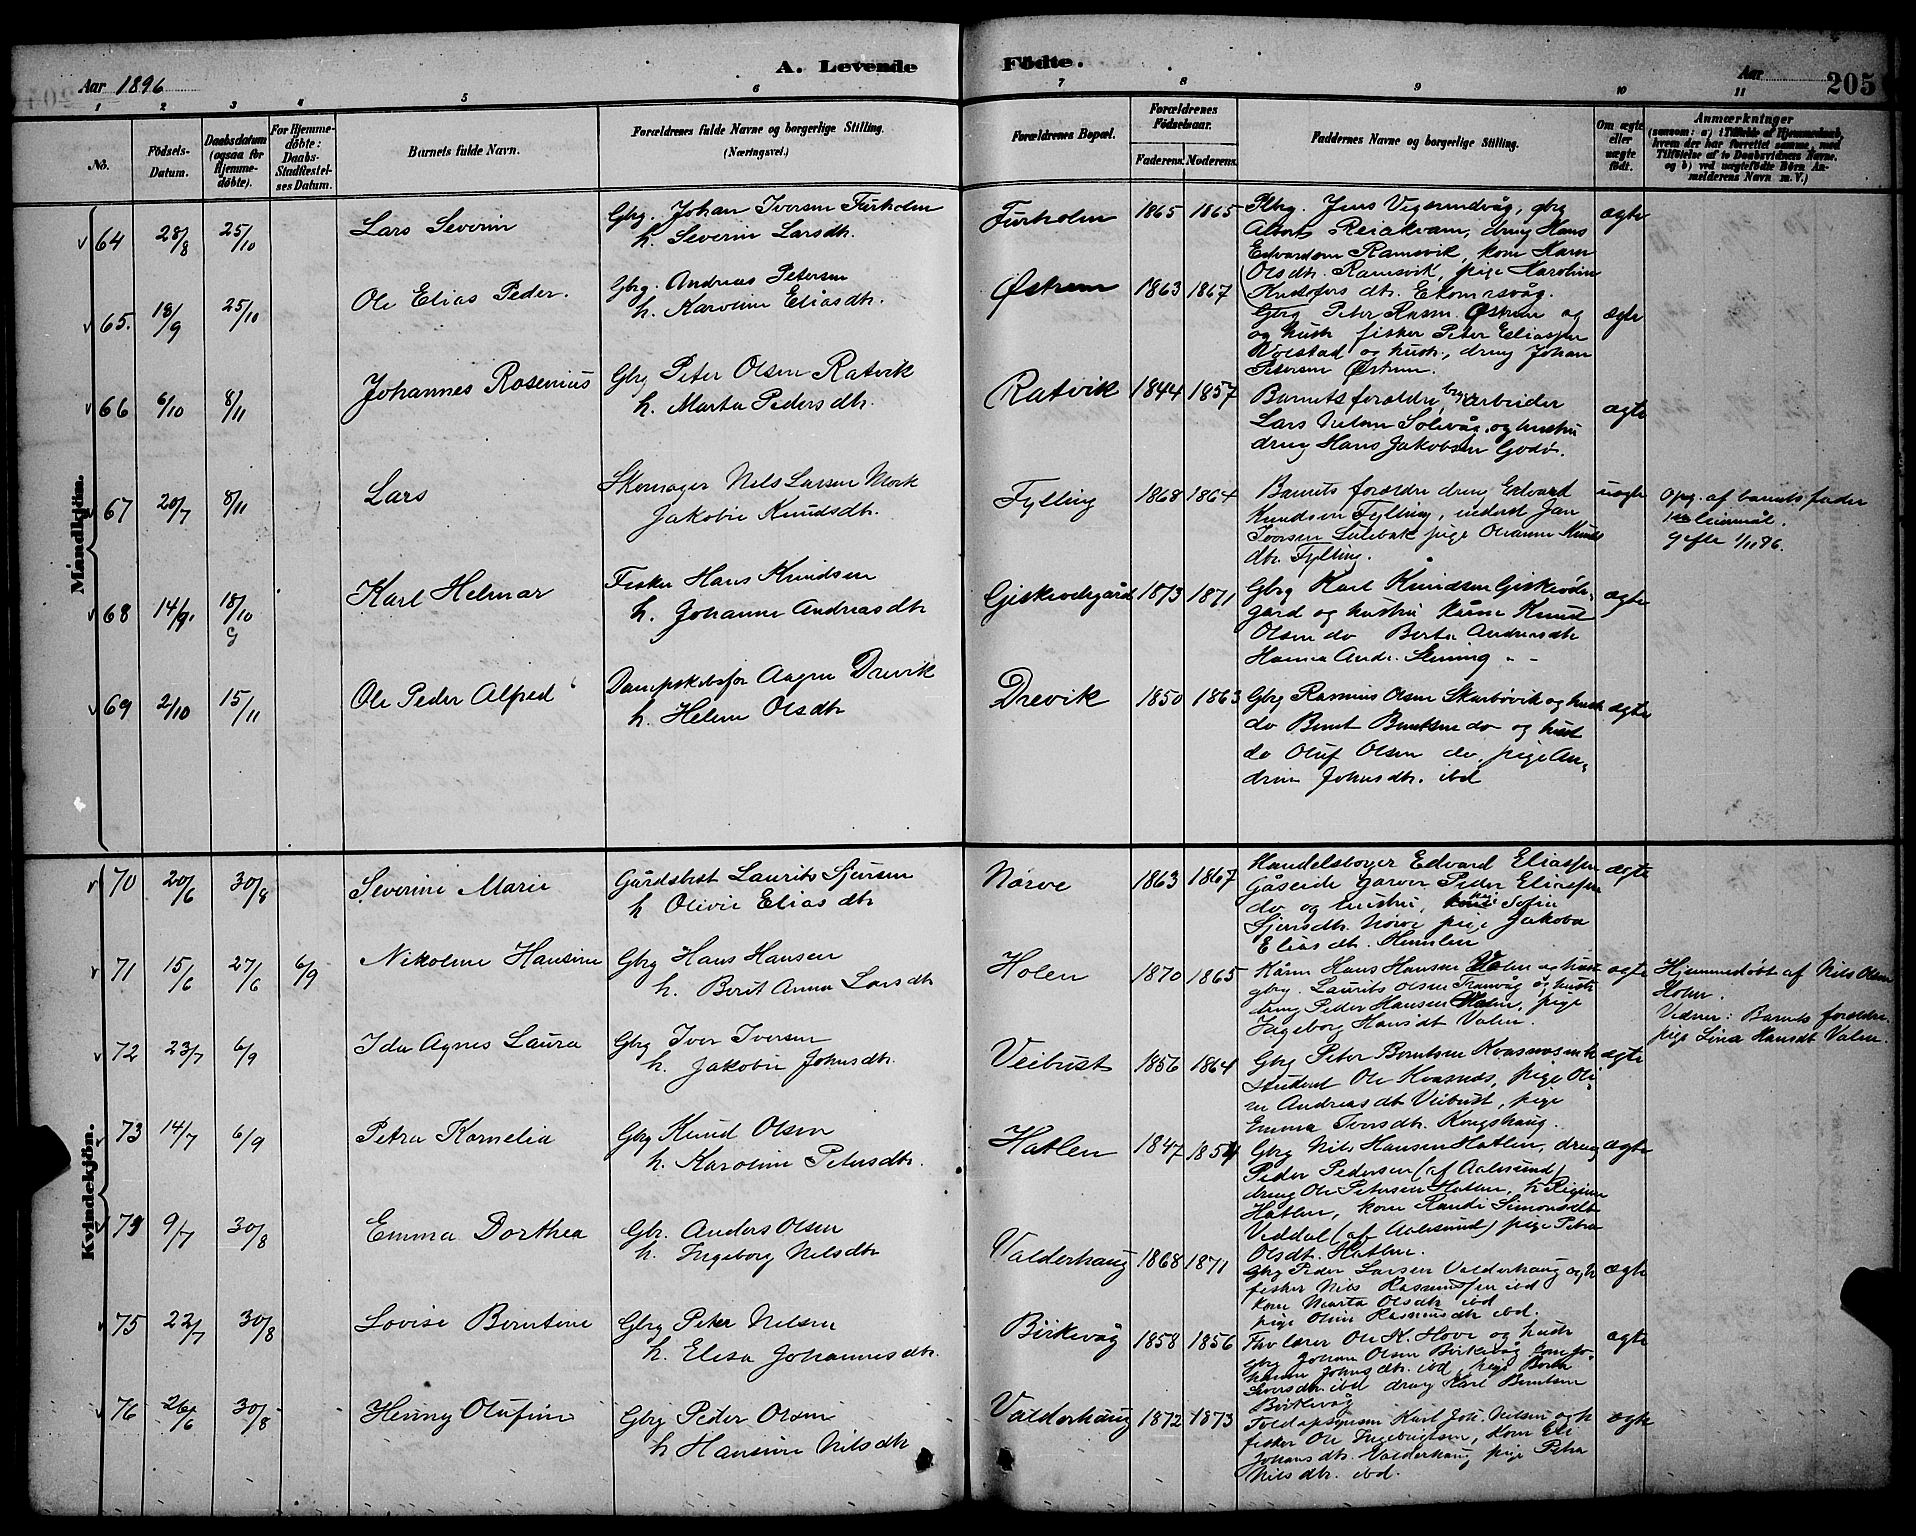 Aar 1896
A. Levende
Födte.
Aar
205
1 2 3 4 5 6 7 8 9 10 11
No.
Födsels-Datum.
Daabsdatum (ogsaa for Hjemme-döbte).
For Hjemme-döbte: Daabs-Stadfæstel-ses Datum.
Barnets fulde Navn.
Forældrenes fulde Navne og borgerlige Stilling. (Næringsvei.)
Forældrenes Bopæl.
Forældrenes Födselsaar.
Faderens. Moderens.
Faddernes Navne og borgerlige Stilling.
Om ægte eller uægte födt.
Anmærkninger
(saasom: a) i Tilfælde af Hjemmedaab, hvem der har forrettet samme, med Tilföielse af to Daabsvidners Navne, og b) ved uægtefödte Börn An-melderens Navn m. V.)
Mandkjön.
64 28/8 25/10 Lars Severin
Gbg. Johan Iversen Furholm
h. Severin Larsdtr.
Furholm 1865 1865
Pbg. Jens Vigsundvåg, gbg
Albert Reiakvam, dreng Hans
Edvardsen Ramsvik, kone Karen
Olsdtr. Ramsvik, pige Karoline
Kristofers dtr. Ekornesvåg.
ægte
65. 18/9 25/10 Ole Elias Peder.
Gbg. Andreas Petersen
h. Karoline Eliasdtr.
Østrem 1863 1867
Gbg Peter Rasm. Østrem og
og hust. fisker Peter Eliassen
Volstad og hust., dreng Johan
Petersen Østrem.
ægte
66 6/10 8/11 Johannes Rosenius
Gbg Peter Olsen Ratvik
h. Marta Pedersdtr.
Ratvik 1844 1857
Barnets forældre, arbeider
Lars Nilsen Solevåg, og hustru
dreng Hans Jakobsen Godö.
ægte
67 20/7 8/11 Lars
Skomager Nils Larsen Mork
Jakobie Knudsdtr.
Fylling 1868 1864
Barnets forældre dreng Edvard
Knudsen Fylling, inderst Jan
Iversen Lillebak pige Olianne Knuds
dtr. Fylling.
uægte
Opg. af barnets fader
1ste leiermål.
Gifte 1/11 96.
68 14/9. 18/10 G Karl Helmar
Fisker Hans Knudsen
h. Johanne Andreasdtr
Giskeødegård 1873 1871
Gbg Karl Knudsen Giskeøde-
gård og hustru kårm Knud
Olsen do Berte Andreasdtr
Hanna Andr. Slening " "
ægte
69 2/10 15/11 Ole Peder Alfred
Dampskibsfør Aagen Drevik
h. Helene Olsdtr
Drevik 1850 1863
Gbg Rasmus Olsen Skarbøvik og hust
do Bernt Berntsen do og hust
do Oluf Olsen do, pige An-
drine Johnsdtr. ibd
ægte
Kvindekjön.
70 20/6 30/8 Severine Marie
Gårdsbest Laurits Sjursen
h Olivie Eliasdtr
Nørve 1863 1867
Handelsborger Edvard Eliassen
Gåseide garver Peder Eliassen
do og hustru, Sofie
Sjursdtr. Nørve pige Jakoba
Elias dtr. Humlen
ægte
71 15/6 27/6 6/9 Nikoline Hansine
Gbg Hans Hansen
h. Berit Anna Larsdtr
Holen 1870 1865
Kårm Hans Hansen Valen og hust
gbg. Laurits Olsen Tranvåg og hustr
dreng Peder Hansen Valen, pige
Ingeborg Hansdt Valen.
ægte
Hjemmedøbt af Nils Olsen
Holen.
Vidner: Barnets forældre,
pige Lina Hansdt Valen.
72 23/7 6/9 Ida Agnes Laura
Gbg Iver Iversen
h. Jakobie Johnsdtr.
Veibust 1856 1864
Gbg Peter Berntsen Kvasnes h
student Ole Kvasnes, pige Oli-
ne Andreasdt Veibust, pige
Emma Iversdtr. Kongshaug.
ægte
73 14/7 6/9 Petra Kornelia
Gbg Knud Olsen
h. Karoline Petersdtr.
Hatlen 1847 1854
Gbg Nils Hansen Hatlen, dreng
Peder Pedersen (af Aalesund)
dreng Ole Petersen Hatlen, h Regine
Hatlen, kone Randi Simonsdt
Veddal (af Aalesund) pige Petra
Olsdt. Hatlen.
ægte
74 9/7 30/8 Emma Dorthea
Gbr. Anders Olsen
h. Ingeborg Nilsdtr
Valderhaug 1868 1871
Gbg Peder Larsen Valderhaug og h
fisker Nils Rasmussen ibd
kone Marta Olsdtr ibd
pige Oline Rasmusdtr ibd.
ægte
75 22/7 30/8 Lovise Berntine
Gbg Peter Nilsen
h. Elisa Johannesdtr.
Birkevåg 1858 1856
Fhv lærer Ole K. Hove og hustr
gbg Johan Olsen Birkevåg kone Jo-
hanne Johnsdtr. ibd, pige Berte
Iversdtr. ibd dreng Karl Berntsen
Birkevåg
ægte
76 26/6 30/8 Henny Olufine
Gbg Peder Olsen
h Hansine Nilsdtr
Valderhaug 1872 1873
Toldopsynsm Karl Joh. Nilsen og h
fisker Ole Ingebrigtsen, kone Eli
Johansdtr. Valderhaug pige Petra
Nilsdtr. ibd.
ægte